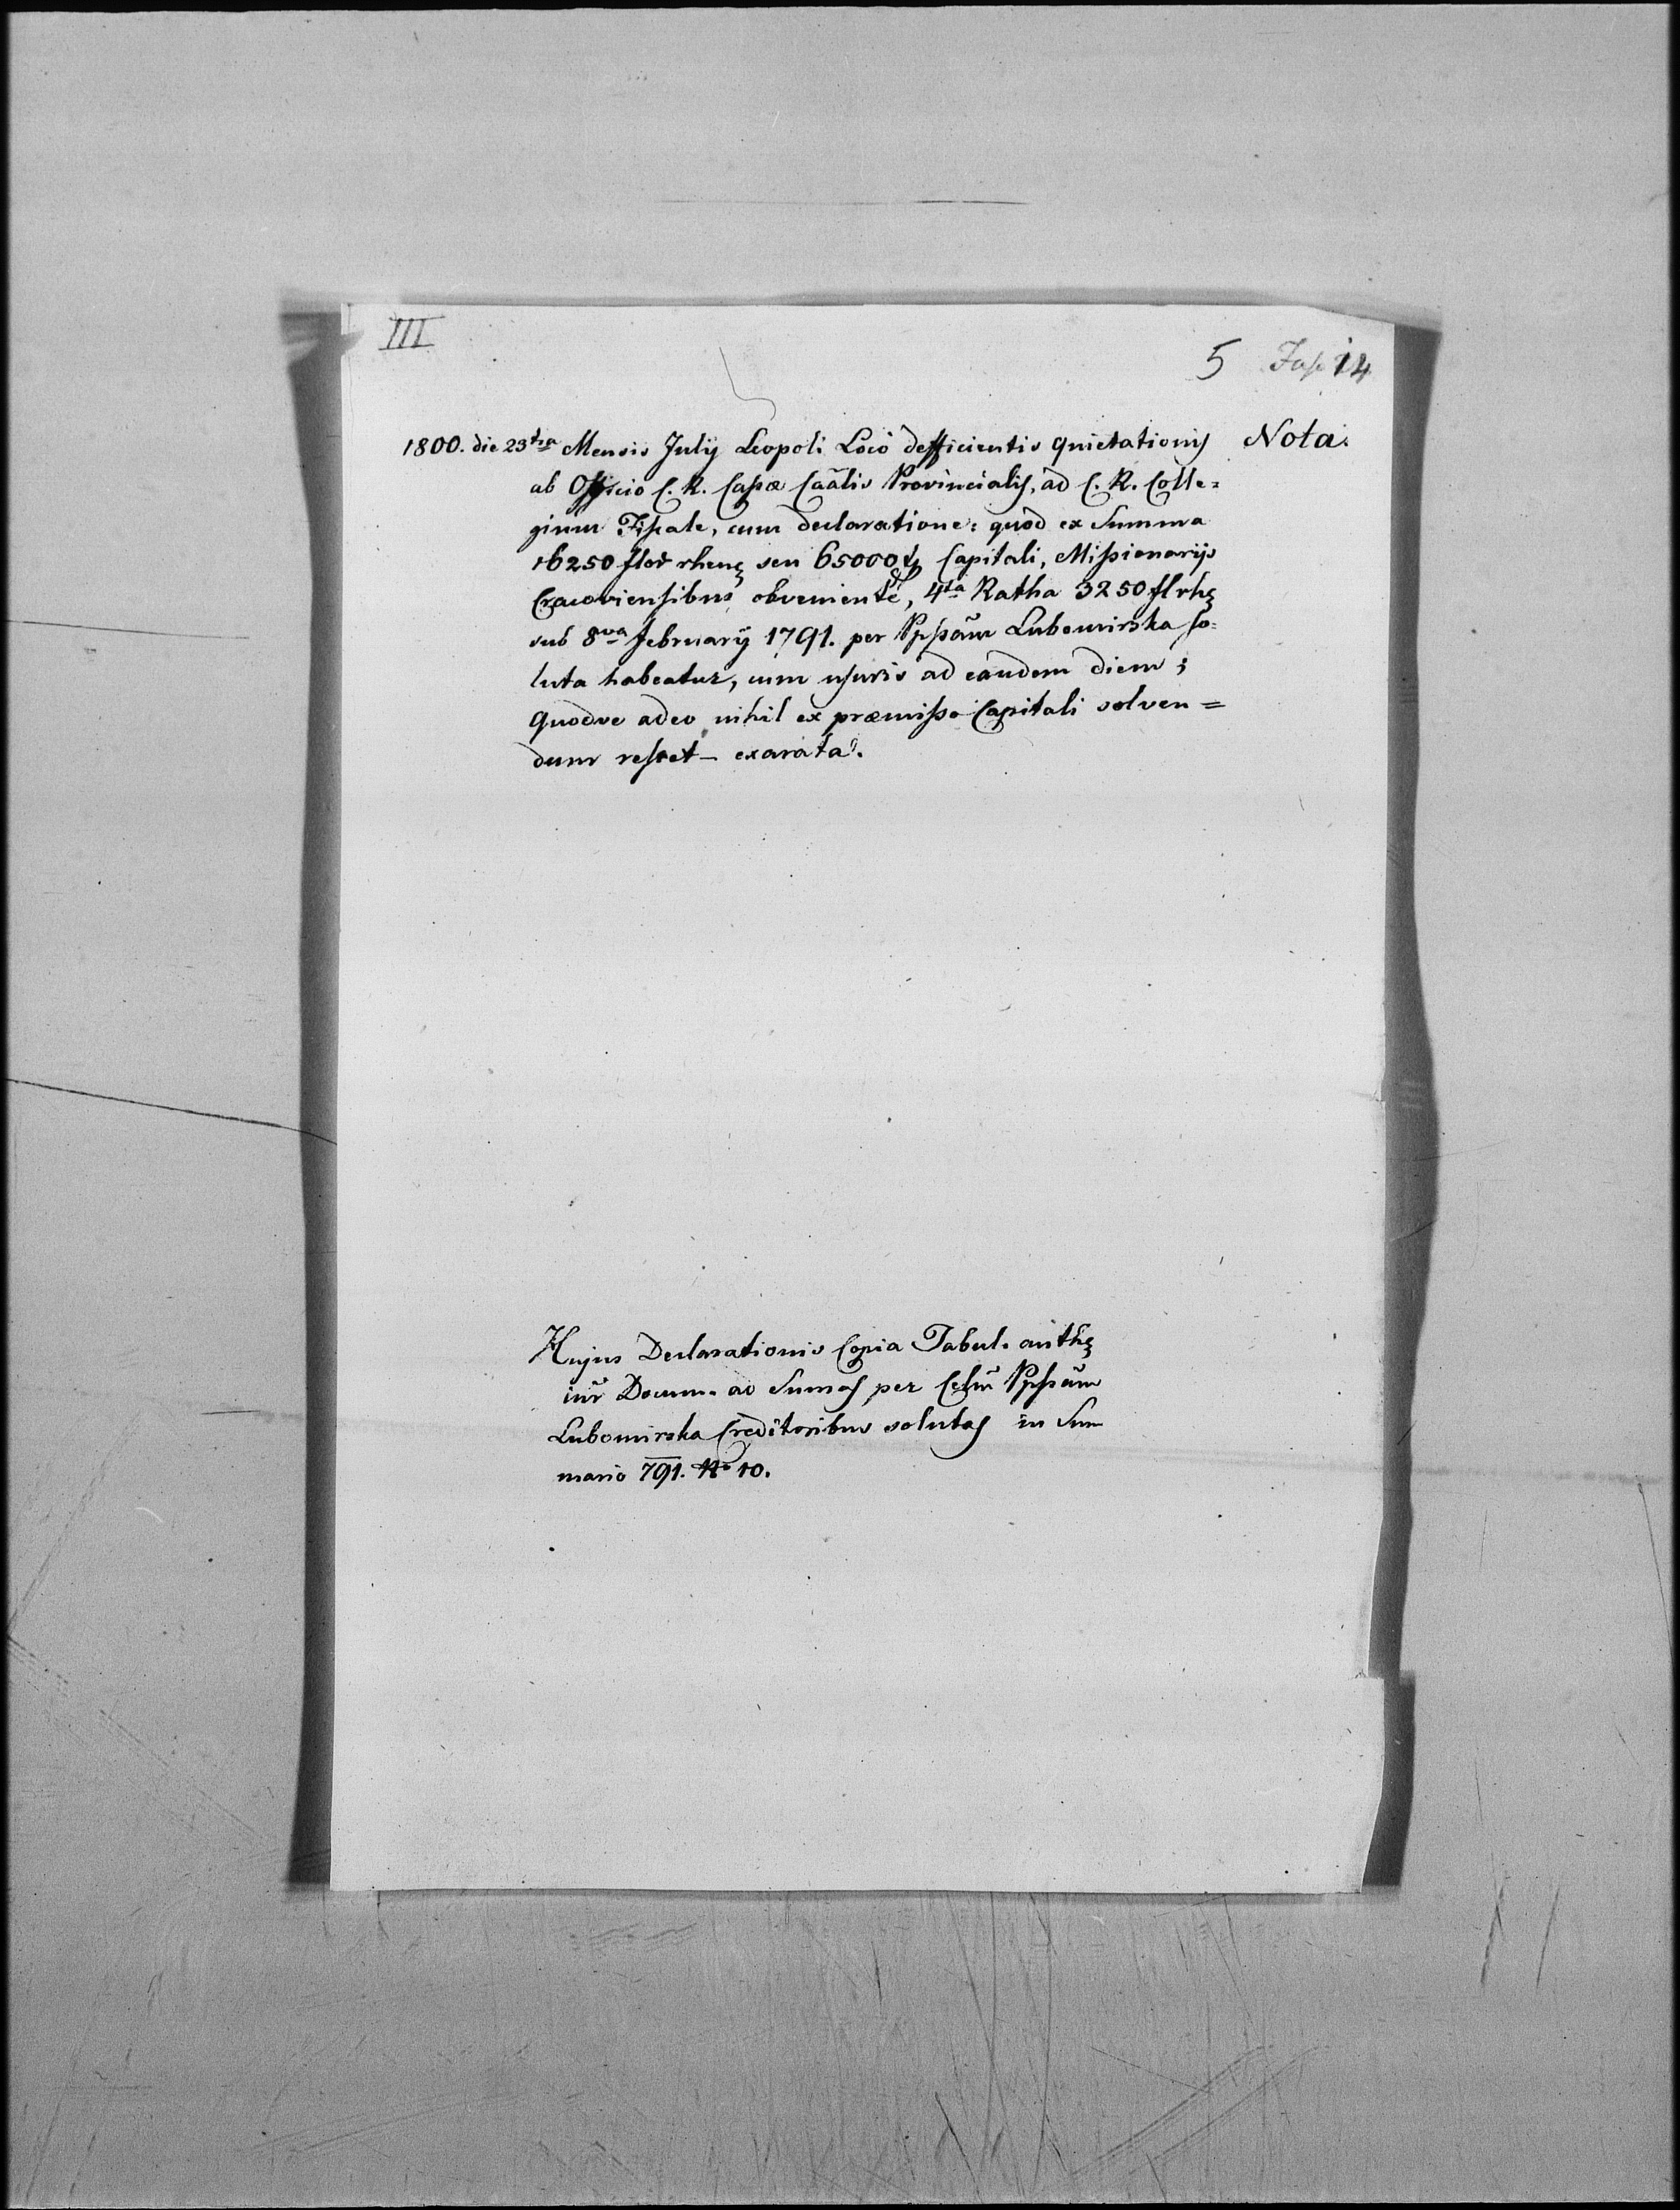 III
5 Fasc 14
1800. die 23tia Mensis Julÿ Leopoli Loco defficientis quietationis Nota.
ab Officio C. R. Cassæ Caãlis Provincialis, ad C. R. Colle=
gium Fiscale, cum declaratione: quod ex Summa
16250 flor rhen seu 65000 Capitali, Missionarijs
Cracoviensibus obveniente, 4ta Ratha 3250 fl rh
sub 8va februarÿ 1791. per Ppssam Lubomirska so=
luta habeatur, cum usuris ad eandem diem;
quodve adeo nihil ex præmisso Capitali solven=
dum restet – exarata.
Hujus Declarationis Copia Tabul. auth
inr Docum. ad Sumas per Cels̃m Ppssam
Lubomirska Creditoribus solutas in Sum
mario 791. No 10.